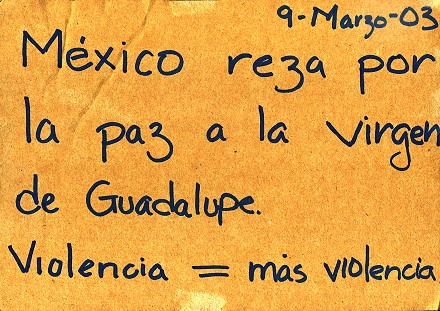 9-Marzo-03
México reza por
la paz a la virgen
de Guadalupe.
Violencia = más violencia